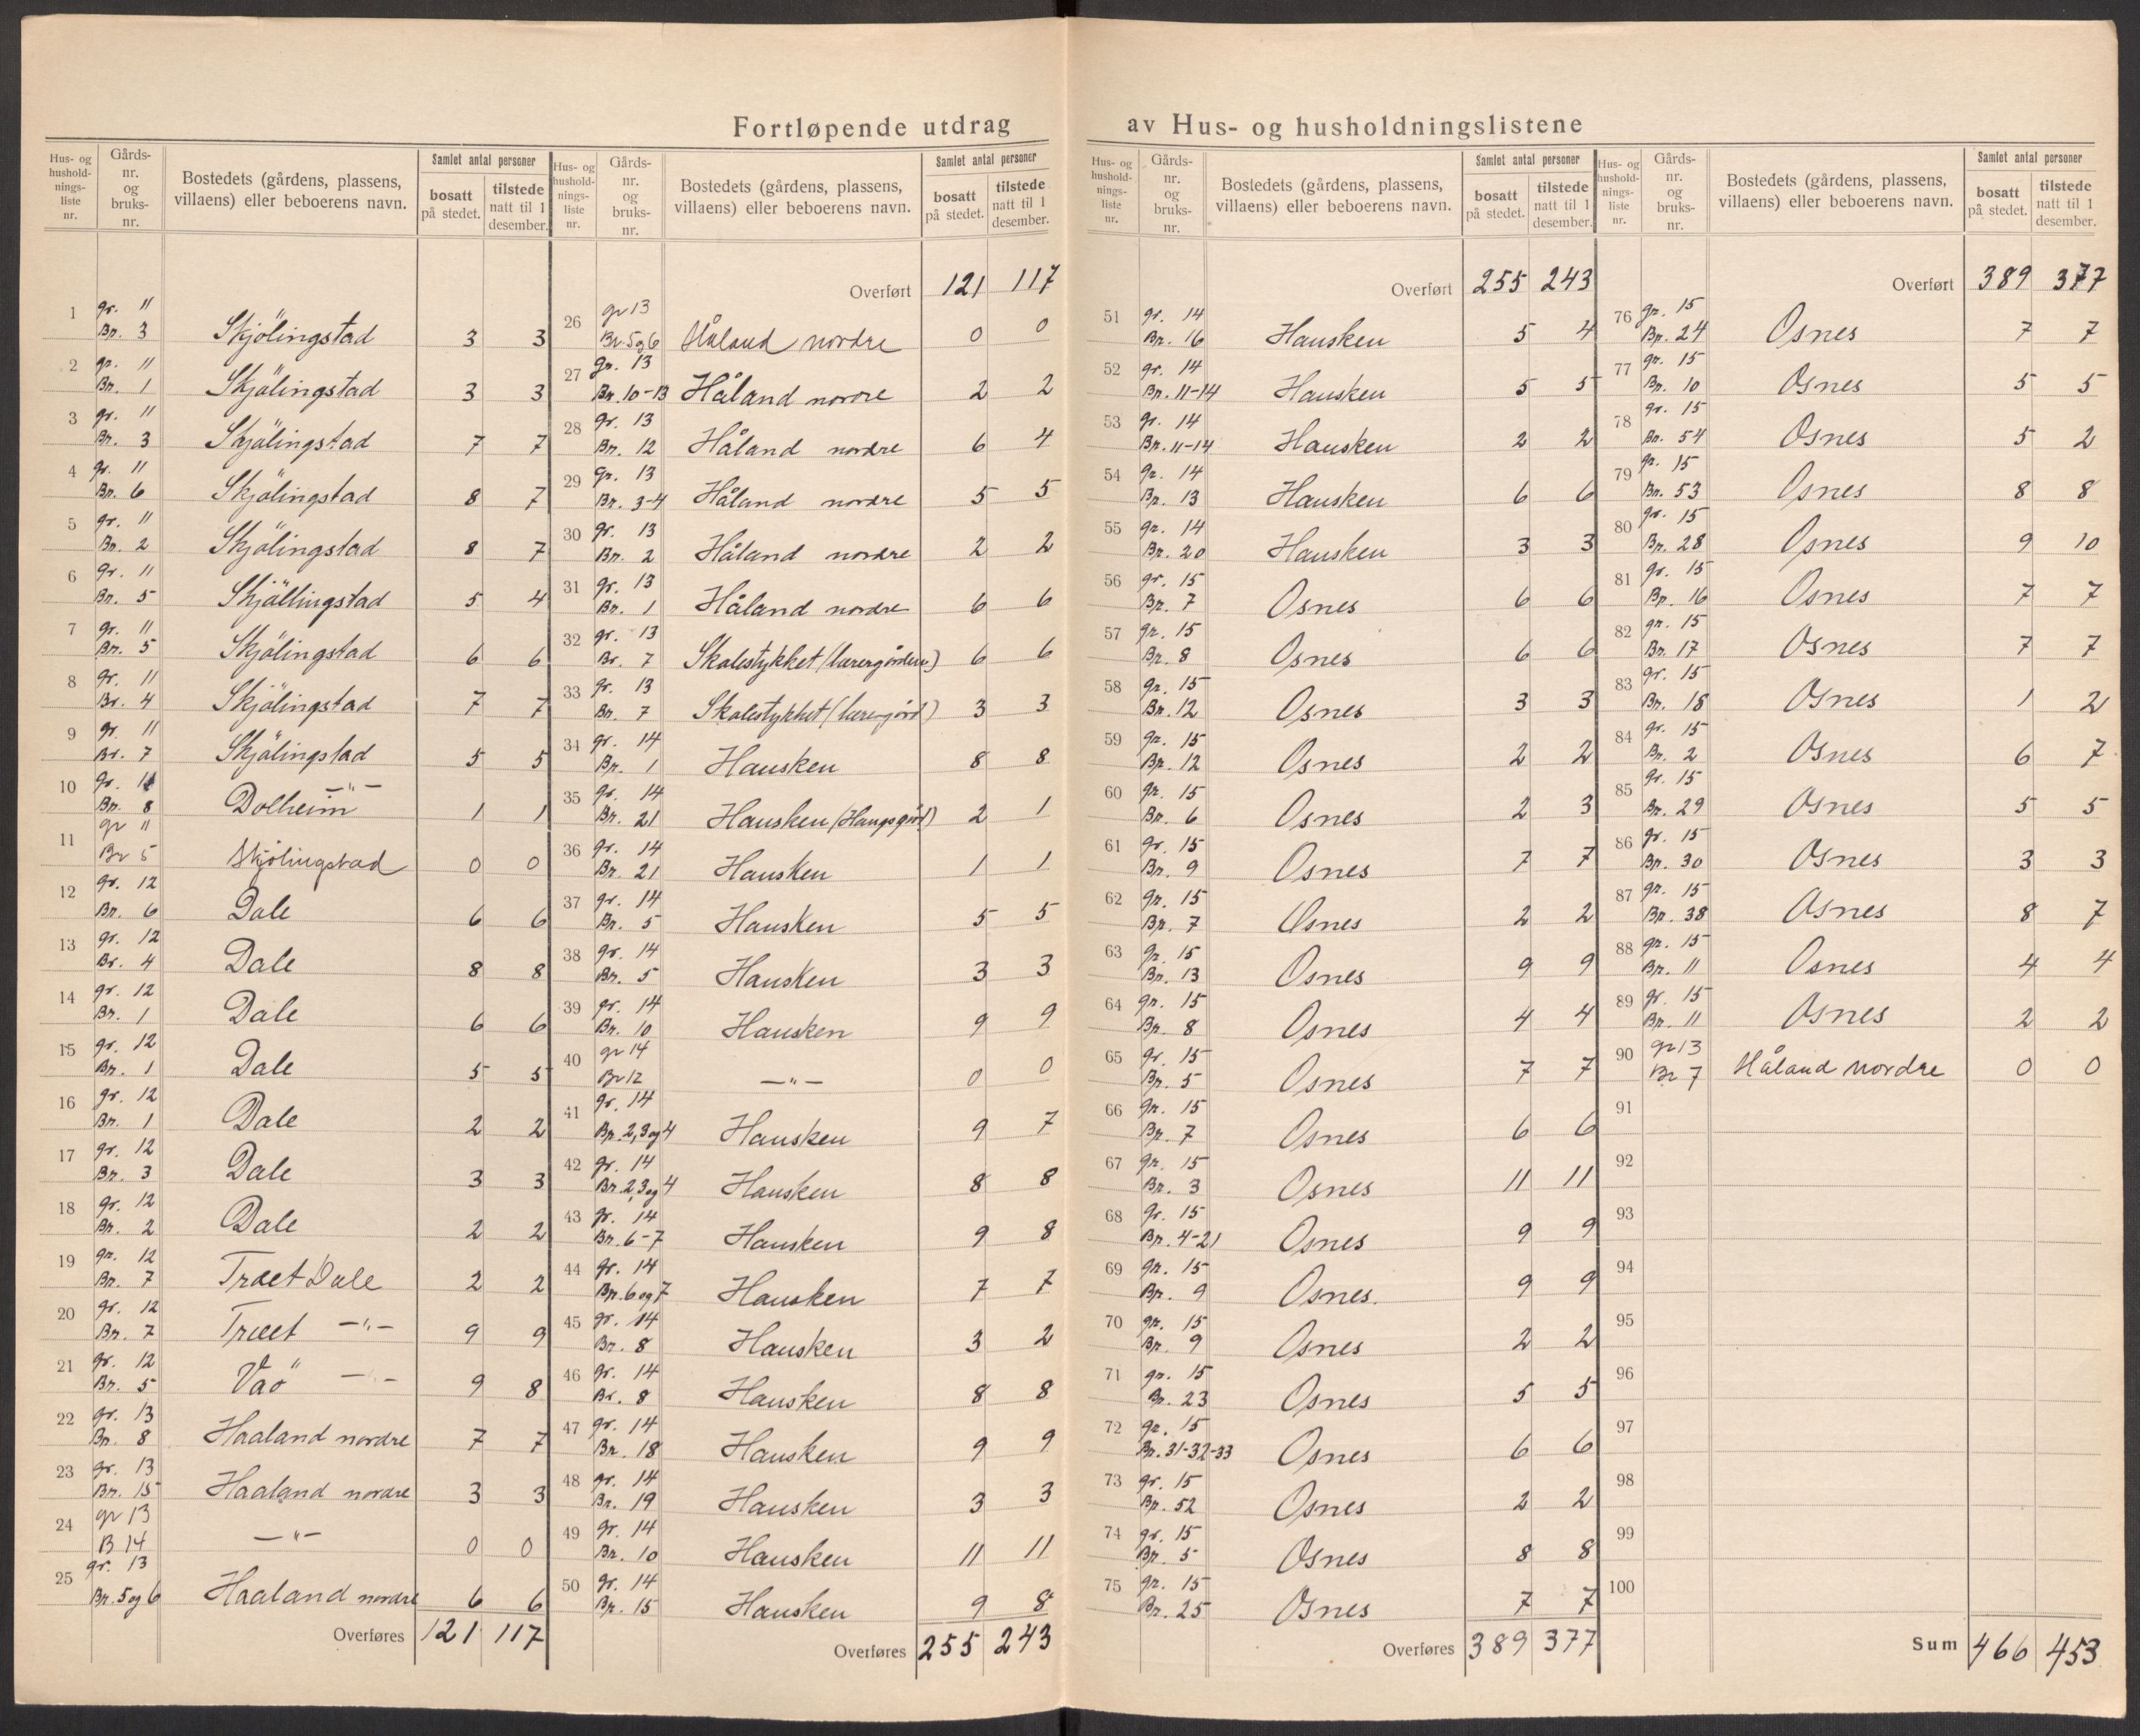 Fortløpende utdrag av Hus- og husholdningslistene
Hus- og husholdningsliste nr. | Gårds- nr. og bruks- nr. | Bostedets (gårdens, plassens, villaens) eller beboerens navn. | Samlet antal personer | bosatt på stedet. | tilstede natt til 1 desember.
1 gr. 11 Bn. 3 Skjölingstad 3 3
2 gr. 11 Bn. 1 Skjölingstad 3 3
3 gr. 11 Bn. 3 Skjölingstad 7 7
4 gr. 11 Bn. 6 Skjölingstad 8 7
5 gr. 11 Bn. 2 Skjölingstad 8 7
6 gr. 11 Bn. 5 Skjöllingstad 5 4
7 gr. 11 Bn. 5 Skjölingstad 6 6
8 gr. 11 Br. 4 Skjölingstad 7 7
9 gr. 11 Br. 7 Skjölingstad 5 5
10 gr. 11 Bn. 8 Dolheim —"— 1 1
11 gr 11 Br 5 Skjölingstad 0 0
12 gr. 12 Bn. 6 Dale 6 6
13 gr. 12 Br. 4 Dale 8 8
14 gr. 12 Bn. 1 Dale 6 6
15 gr. 12 Bn. 1 Dale 5 5
16 gr. 12 Bn. 1 Dale 2 2
17 gr. 12 Bn. 3 Dale 3 3
18 gr. 12 Bn. 2 Dale 2 2
19 gn. 12 Bn. 7 Træet Dale 2 2
20 gr. 12 Bn. 7 Træet —"— 9 9
21 gr. 12 Bn. 5 Vaö —"— 9 8
22 gr. 13 Bn. 8 Haaland nordre 7 7
23 gr. 13 Bn. 15 Haaland nordre 3 3
24 gr 13 B 14 —"— 0 0
25 gr. 13 Bn. 5 og 6 Haaland nordre 6 6
Overføres 121 117
Hus- og husholdningsliste nr. | Gårds- nr. og bruks- nr. | Bostedets (gårdens, plassens, villaens) eller beboerens navn. | Samlet antal personer | bosatt på stedet. | tilstede natt til 1 desember.
Overført 121 117
26 gr 13 Br. 5 og 6 Håland nordre 0 0
27 gn. 13 Bn. 10-13 Håland nordre 2 2
28 gr. 13 Bn. 12 Håland nordre 6 4
29 gn. 13 Bn. 3-4 Håland nordre 5 5
30 gr. 13 Bn. 2 Håland nordre 2 2
31 gr. 13 Bn. 1 Håland nordre 6 6
32 gr. 13 Br. 7 Skolestykket (lærergården) 6 6
33 gr. 13 Bn. 7 Skolestykket (lærergård) 3 3
34 gr. 14 Bn. 1 Hausken 8 8
35 gr. 14 Bn. 21 Hausken (Haugsgård) 2 1
36 gr. 14 Bn. 21 Hausken 1 1
37 gr. 14 Bn. 5 Hausken 5 5
38 gr. 14 Bn. 5 Hausken 3 3
39 gr. 14 Bn. 10 Hausken 9 9
40 gr 14 Br 12 —"— 0 0
41 gr. 14 Bn. 2, 3 og 4 Hausken 9 7
42 gr. 14 Bn. 2, 3 og 4 Hausken 8 8
43 gr. 14 Bn. 6-7 Hausken 9 8
44 gr. 14 Bn. 6 og 7 Hausken 7 7
45 gr. 14 Bn. 8 Hausken 3 2
46 gr. 14 Br. 8 Hausken 8 8
47 gr. 14 Bn. 18 Hausken 9 9
48 gr. 14 Bn. 19 Hausken 3 3
49 gr. 14 Bn. 10 Hausken 11 11
50 gr. 14 Bn. 15 Hausken 9 8
Overføres 255 243
Hus- og husholdningsliste nr. | Gårds- nr. og bruks- nr. | Bostedets (gårdens, plassens, villaens) eller beboerens navn. | Samlet antal personer | bosatt på stedet. | tilstede natt til 1 desember.
Overført 255 243
51 gr. 14 Bn. 16 Hausken 5 4
52 gr. 14 Bn. 11-14 Hausken 5 5
53 gr. 14 Bn. 11-14 Hausken 2 2
54 gn. 14 Bn. 13 Hausken 6 6
55 gn. 14 Bn. 20 Hausken 3 3
56 gr. 15 Bn. 7 Osnes 6 6
57 gn. 15 Bn. 8 Osnes 6 6
58 gn. 15 Bn. 12 Osnes 3 3
59 gn. 15 Bn. 12 Osnes 2 2
60 gn. 15 Bn. 6 Osnes 2 3
61 gr. 15 Bn. 9 Osnes 7 7
62 gn. 15 Bn. 7 Osnes 2 2
63 gn. 15 Bn. 13 Osnes 9 9
64 gn. 15 Bn. 8 Osnes 4 4
65 gr. 15 Bn. 5 Osnes 7 7
66 gn. 15 Bn. 7 Osnes 6 6
67 gn. 15 Bn. 3 Osnes 11 11
68 gr. 15 Bn. 4-21 Osnes 9 9
69 gn. 15 Bn. 9 Osnes. 9 9
70 gn. 15 Bn. 9 Osnes 2 2
71 gn. 15 Bn. 23 Osnes 5 5
72 gn. 15 Bn. 31-32-33 Osnes 6 6
73 gr. 15 Bn. 52 Osnes 2 2
74 gr. 15 Bn. 5 Osnes 8 8
75 gn. 15 Bn. 25 Osnes 7 7
Overføres 389 377
Hus- og husholdningsliste nr. | Gårds- nr. og bruks- nr. | Bostedets (gårdens, plassens, villaens) eller beboerens navn. | Samlet antal personer | bosatt på stedet. | tilstede natt til 1 desember.
Overført 389 377
76 gn. 15 Bn. 24 Osnes 7 7
77 gn. 15 Bn. 10 Osnes 5 5
78 gr. 15 Bn. 54 Osnes 5 2
79 gn. 15 Bn. 53 Osnes 8 8
80 gr. 15 Bn. 28 Osnes 9 10
81 gr. 15 Bn. 16 Osnes 7 7
82 gn. 15 Bn. 17 Osnes 7 7
83 gr. 15 Bn. 18 Osnes 1 2
84 gr. 15 Bn. 2 Osnes 6 7
85 gr. 15 Bn. 29 Osnes 5 5
86 gr. 15 Bn. 30 Osnes 3 3
87 gn. 15 Bn. 38 Osnes 8 7
88 gn. 15 Bn. 11 Osnes 4 4
89 gr. 15 Bn. 11 Osnes 2 2
90 gr 13 Br 7 Håland nordre 0 0
91
92
93
94
95
96
97
98
99
100
Sum 466 453